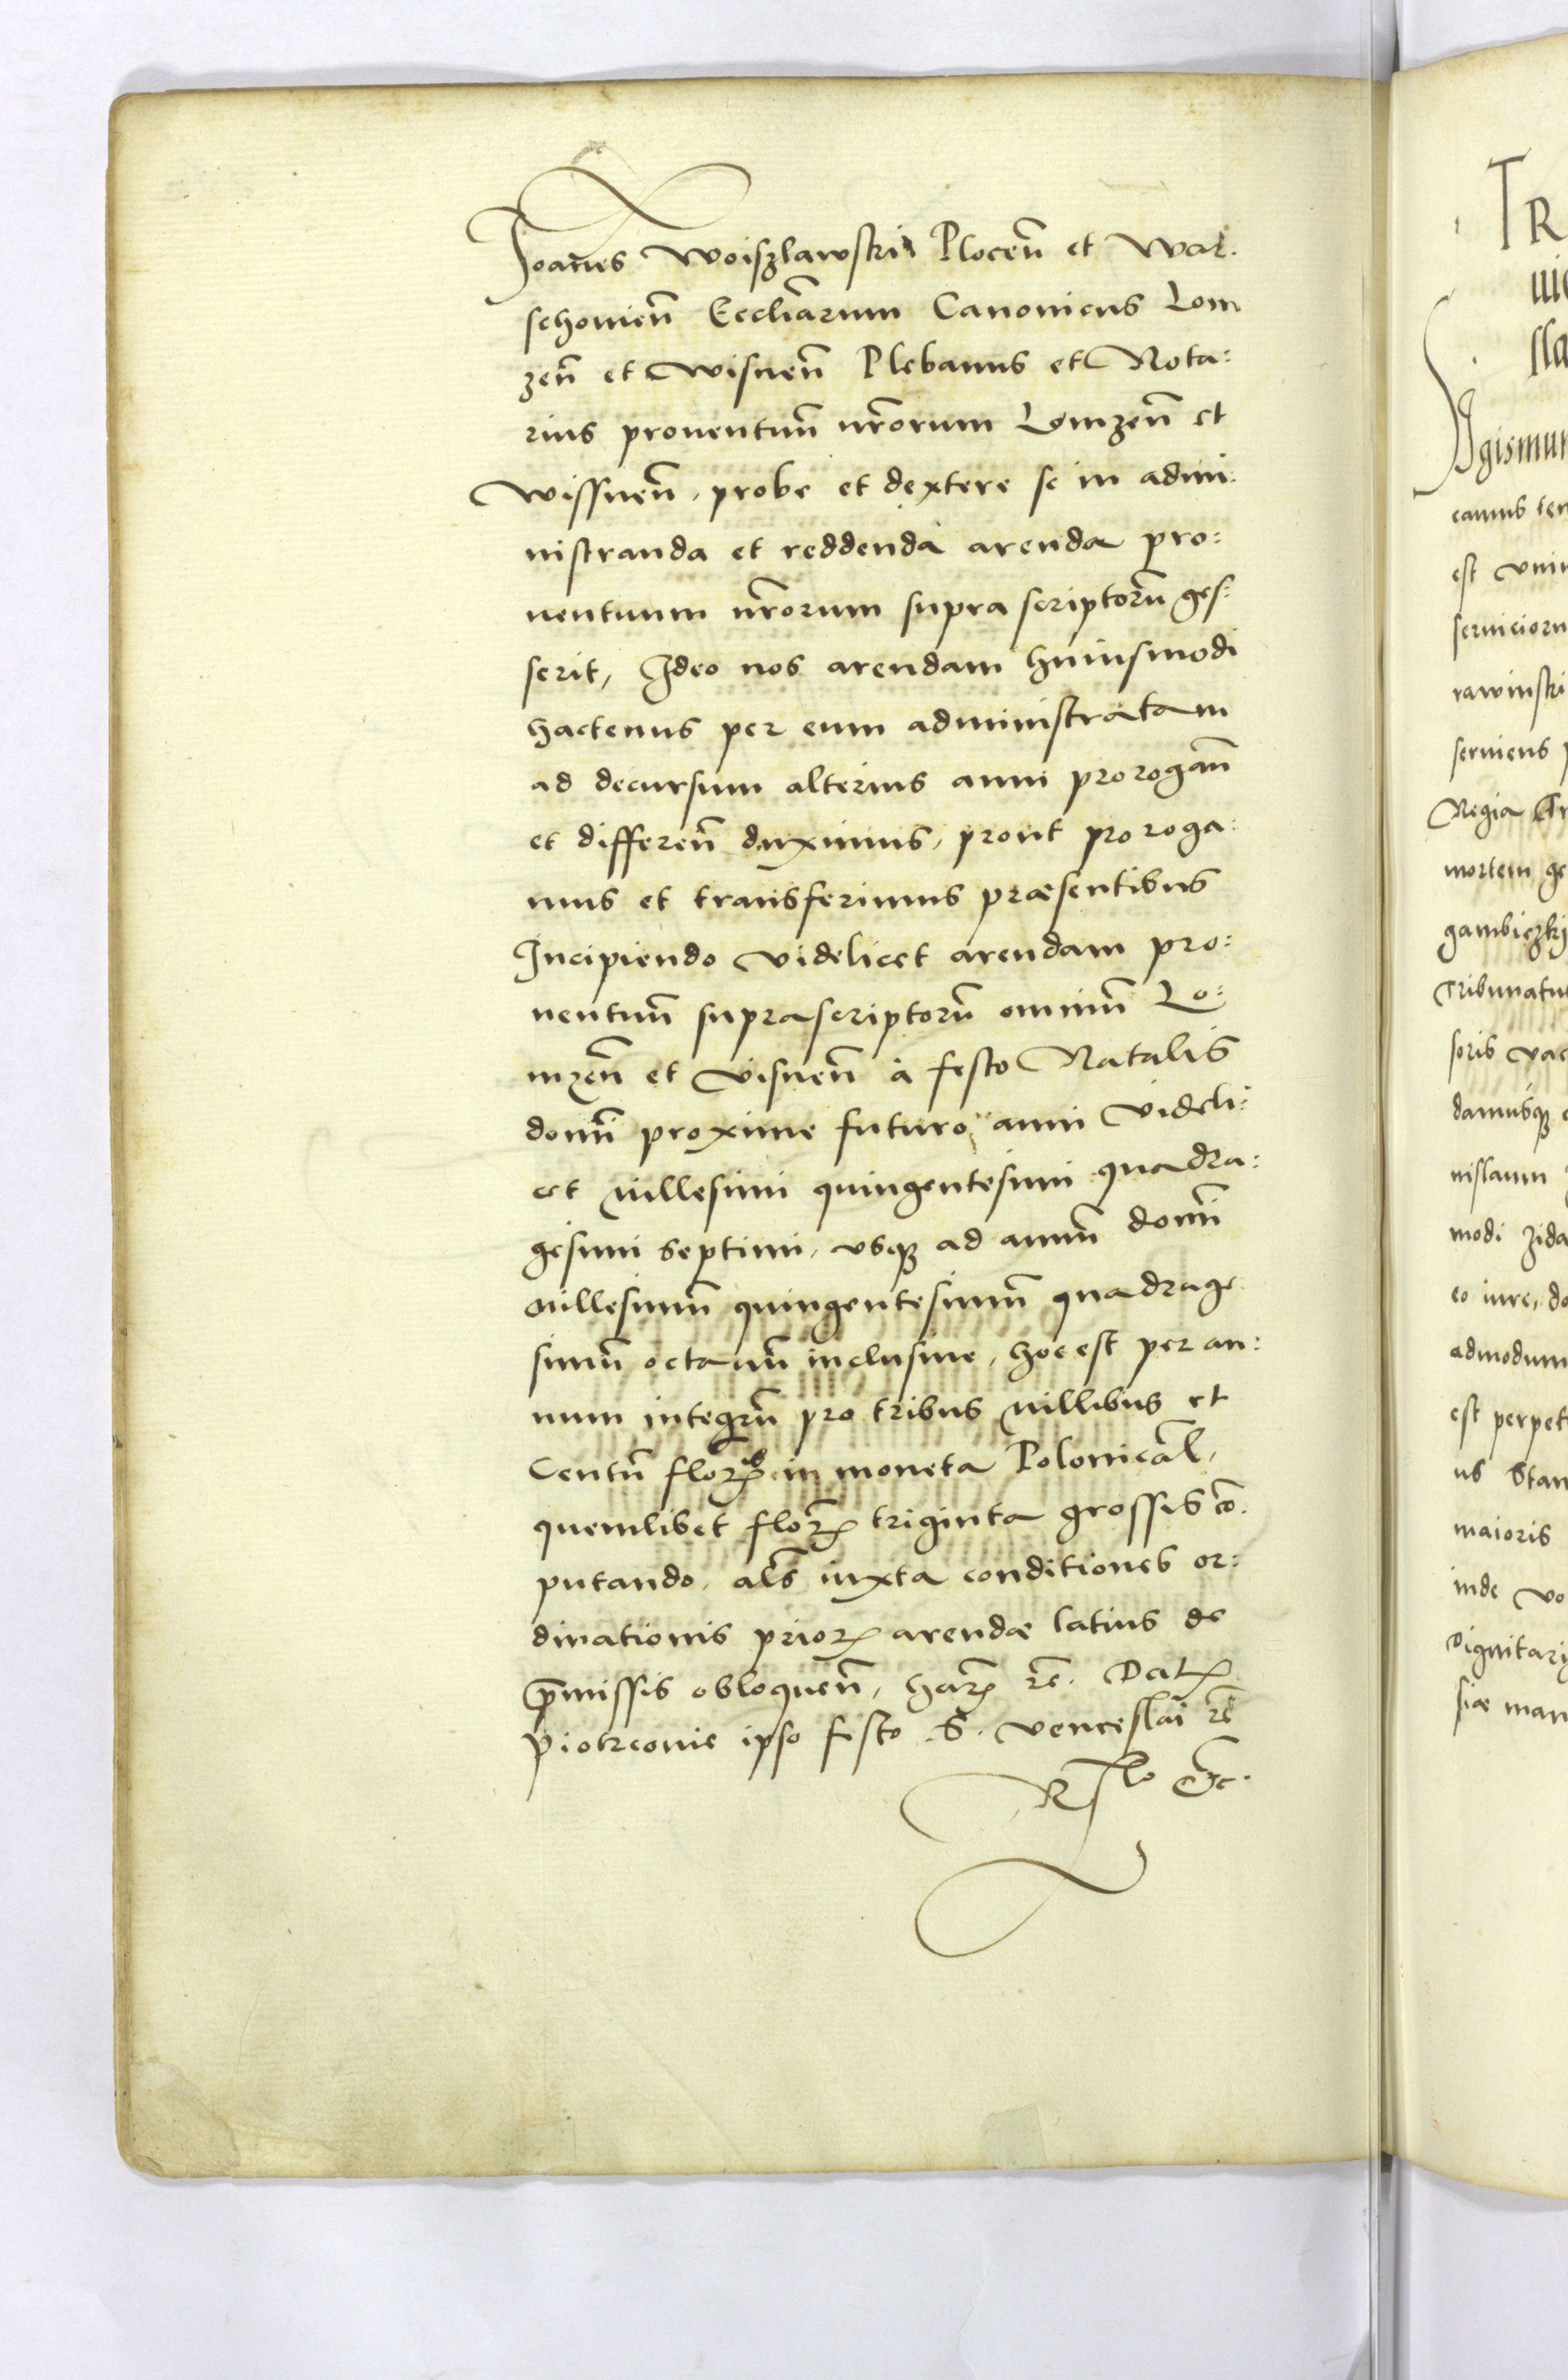 Joānes Woiszlawski Plocen̄ et War.
schouien̄ Ecclīarum Canonicus Lom
zen̄ et Wisnen̄ Plebanus et Nota:
rius prouentuū nr̄orum Lomzen̄ et
Wissnen̄, probe et dextere se in admi:
nistranda et reddenda arenda pro:
uentuum nr̄orum supra scriptorū ges:
serit, Ideo nos arendam huiusmodi
hactenus per eum administratam
ad decursum alterius anni prorogan̄
et differen̄ duximus, prout proroga:
mus et transferimus præsentibus
Incipiendo videlicet arendam pro:
uentuū suprascriptorū omniū Lo:
mzen̄ et Visnen̄ à festo Natalis
domī proxime futuro, anni Videli:
cet millesimi quingentesimi quadra:
gesimi septimi, vsq; ad annū domī
millesimū quingentesimū quadrage
simū octauū inclusiue, hoc est per an:
num integrū pro tribus millibus et
Centū flor. in moneta Polonical̄,
quemlibet flor. triginta grossis cō.
putando, al̄s iuxta conditiones or:
dinationis prior. arendæ latius de
p̄missis obloquen̄, har. rē. Dat.
Piotrconie ipso festo .S. Venceslai rē
Rlo etc.
TR
sla
gismun
camus ter
est vni
seruicioru
rawinski
seruiens
Regia Gr
mortem ge
gambiczkj
Tribunatu
soris vac
damusq;
nislaum
modi zida
eo iure, do
admodum
est perpet
us Stan
maioris
inde vo
Dignitarj
siæ man